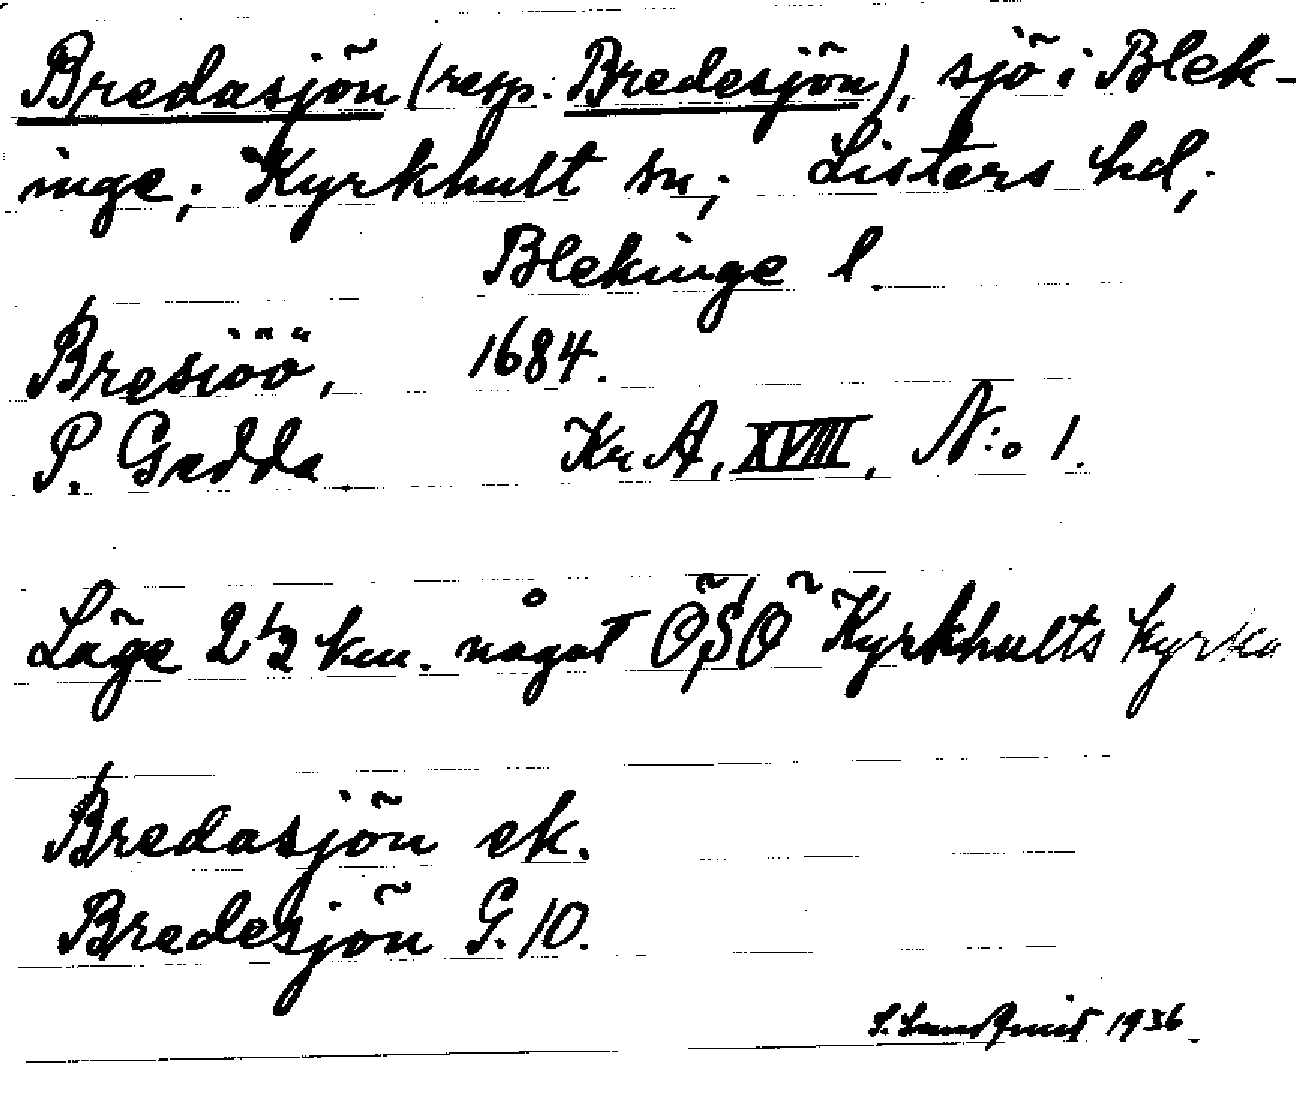 Bredasjön (resp. Bredesjön), sjö i Blek-
inge; Kyrkhult sn; Listers hd;
Blekinge l.
Bresiöö, 1684.
P. Gedda Kr. A, XVIII, N:o 1.
Läge 2 1/2 km. något ÖSÖ Kyrkhults kyrka
Bredasjön ek.
Bredesjön G. 10.
S. Lundqvist 1936